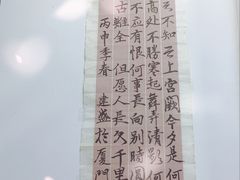 天不知天上宫阙今夕是何
高处不勝寒起舞弄清影何
不应有恨何事長向别時圆
古難全 但愿人長久千里
丙申季春 建盛於厦門